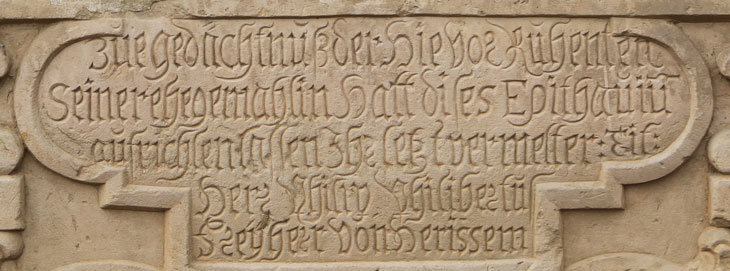 Zue gedächtnuß der Hie vor Ruhenten
Seiner ehegemahlin Hatt dises Epithaviū
aufrichten lassen Ihr letzt vermelter: Tit:
Herr Philip Philibertus
Freyherr von Herissem